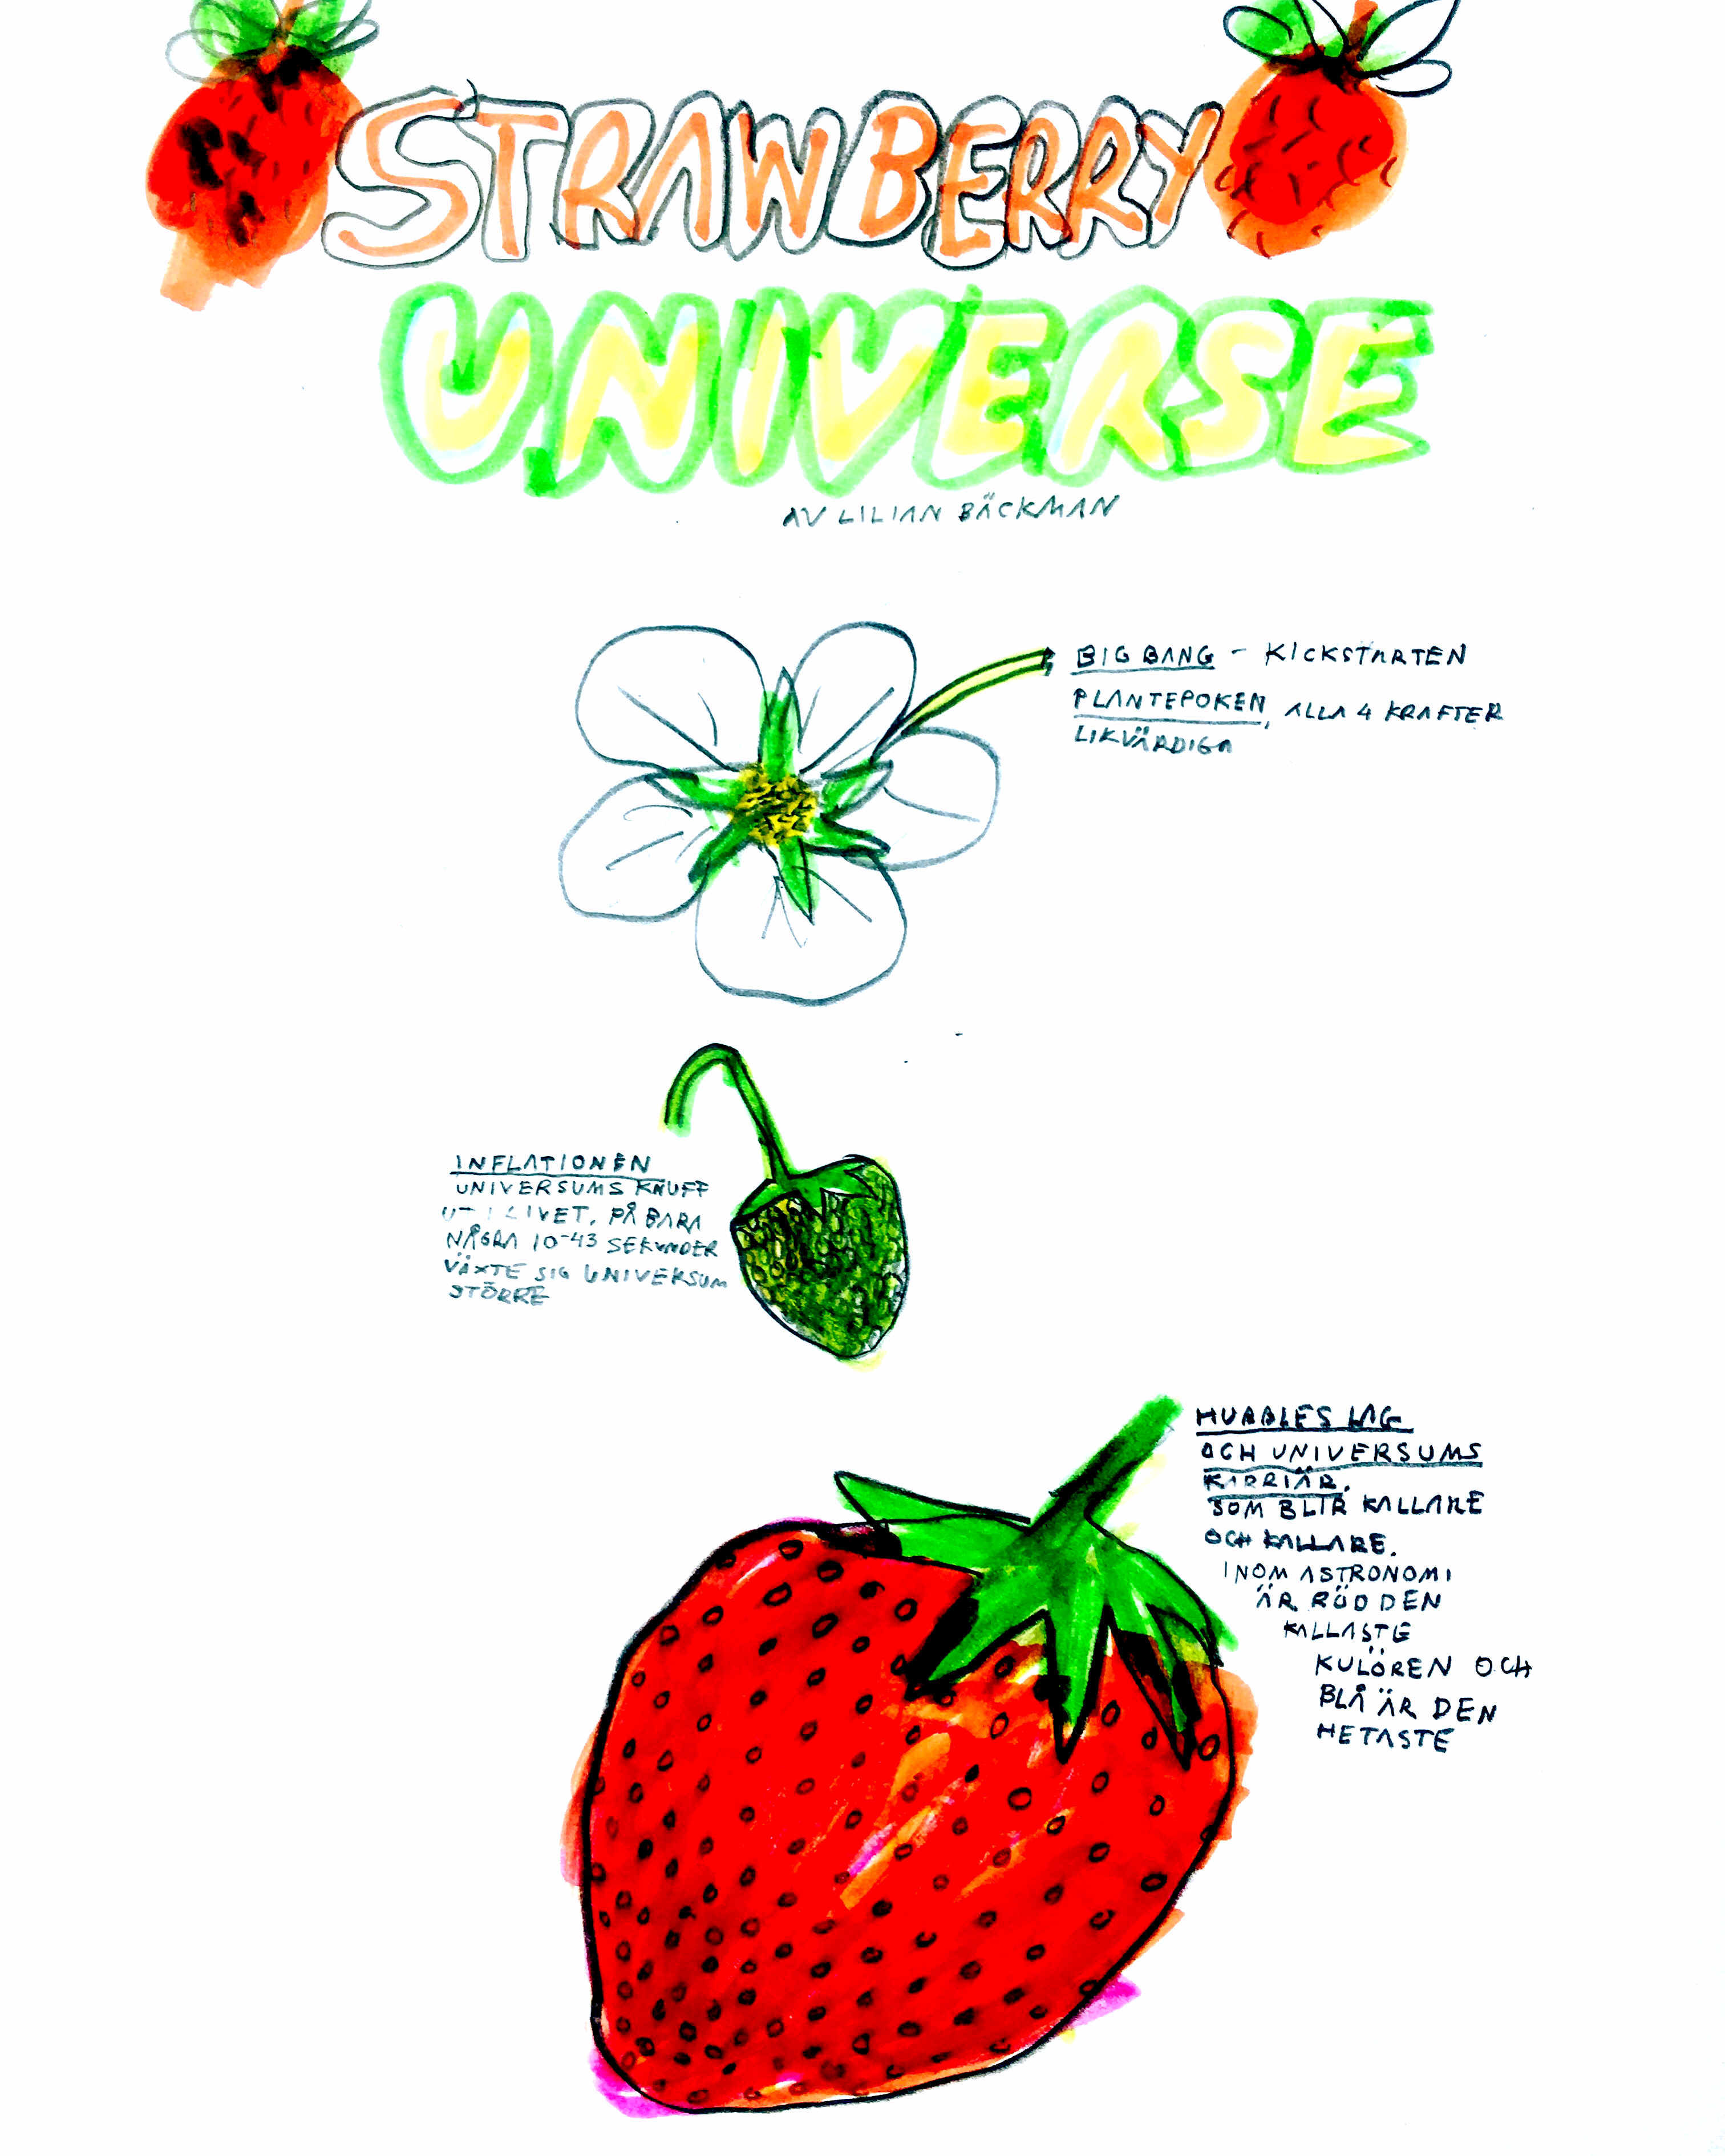 STRAWBERRY
UNIVERSE
AV LILIAN BÄCKMAN
BIG BANG - KICKSTARTEN
PLANTEPOKEN, ALLA 4 KRAFTER
LIKVÄRDIGA
INFLATIONEN
UNIVERSUMS KNUFF
UT I LIVET. PÅ BARA
NÅGRA 10-43 SEKUNDER
VÄXTE SIG UNIVERSUM
STÖRRE
HUBBLES LAG
OCH UNIVERSUMS
KARRIÄR.
SOM BLIR KALLARE
OCH KALLARE.
INOM ASTRONOMI
ÄR RÖD DEN
KALLASTE
KULÖREN OCH
BLÅ ÄR DEN
HETASTE